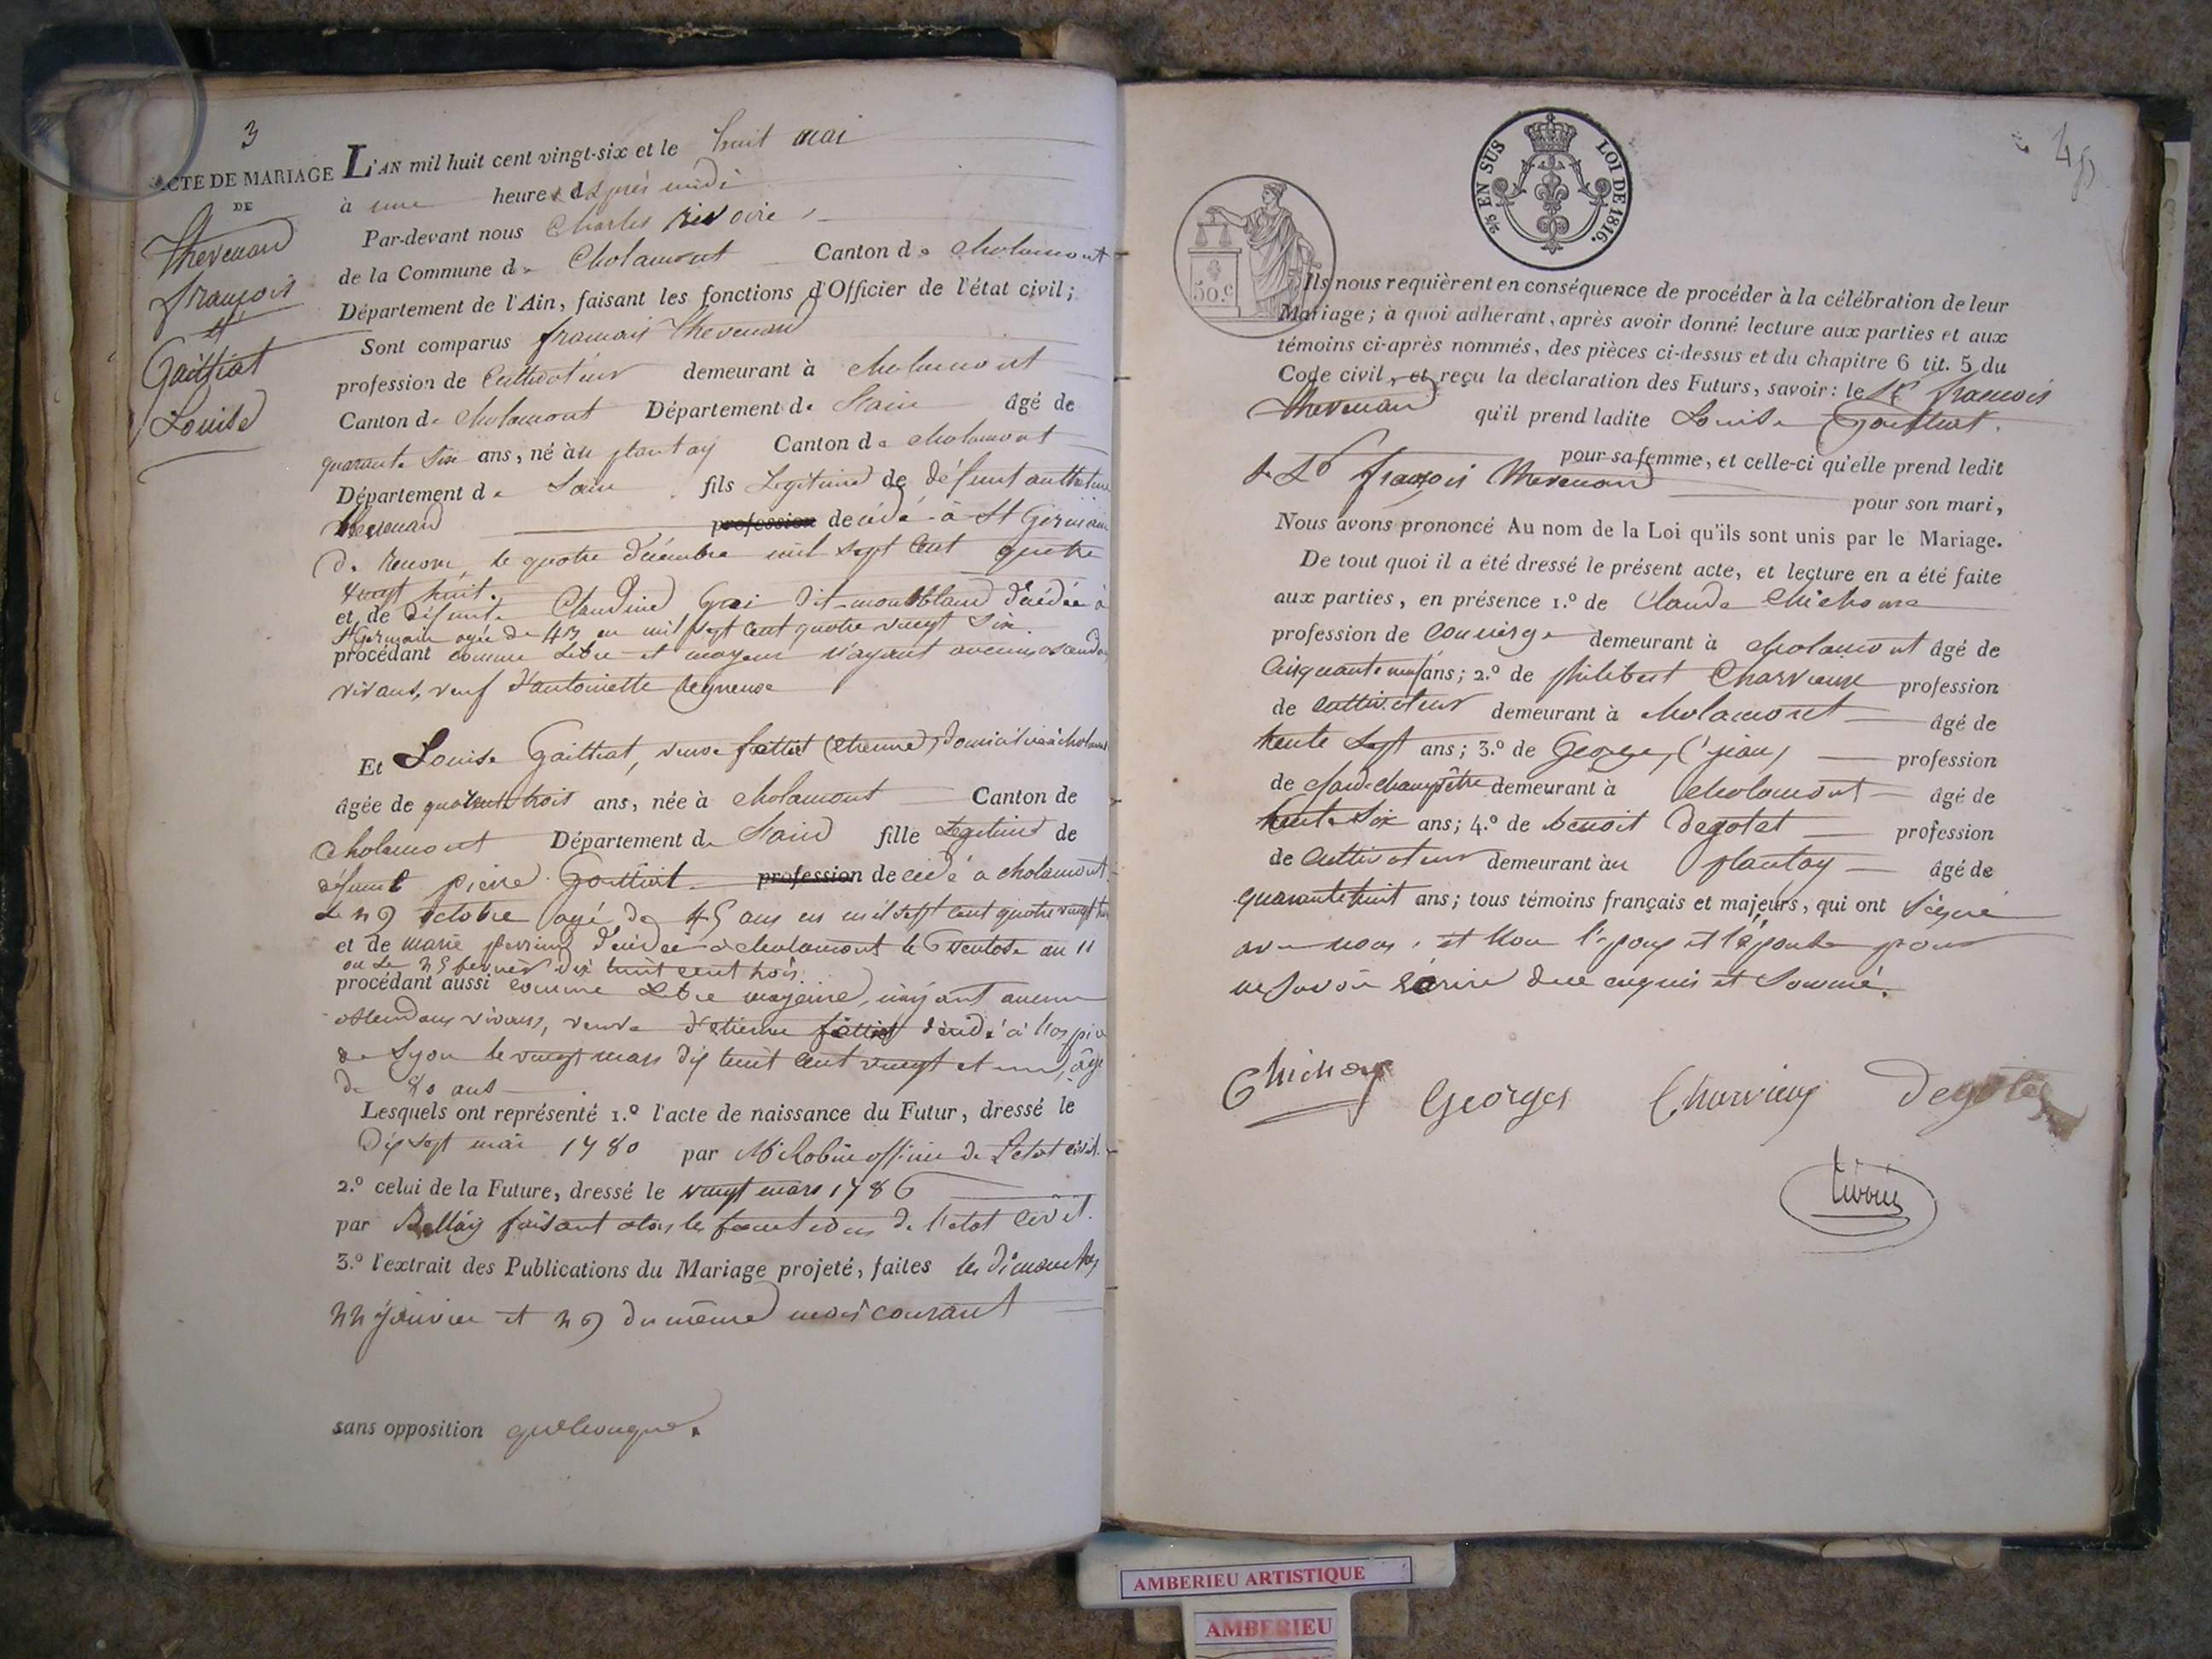 3
ACTE DE MARIAGE
DE
Thevenard
françois
et
Gaittiat
Louise
L'AN mil huit cent vingt-six et le huit mai
à une heures d après midi
Par-devant nous Charles rivoire
de la Commune de Cholamont Canton de cholamont
Département de l'Ain, faisant les fonctions d'Officier de l'état civil;
Sont comparus francois Thevenard
profession de Cultivateur demeurant à cholamont
Canton de cholamont Département de l'ain âgé de
quarante six ans, né à u plantay Canton de cholamont
Département de l'ain fils Legitime de défunt
thevenard profession decédé à St Germain
de renom, le quatre décembre mil sept cent quatre
vingt huit.
et de défunte Claudine décédée à
St Germain agée de 43 en mil sept cent quatre vingt six
procédant comme Libre et majeur n'ayant aucuns ascendans
vivans, veuf d'antoinette
Et Louise Gaittiat, veuve (etienne) domiciliée à cholamont
âgée de quarante trois ans, née à cholamont Canton de
Cholamont Département de l'ain fille Legitime de
défunt pierre Gaittiat profession decédé a cholamont
Le 29 octobre agé de 45 ans en mil sept cent quatre vingt
et de marie perrine décédée a cholamont le 6 ventose an 11
ou Le 25 fevrier dix huit cent trois
procédant aussi comme Libre majeure, n'ayant aucun
vivans, veuve d'etienne décédé à l'ospice
de Lyon le vingt mars dix huit cent vingt et un, âgé
de 80 ans
Lesquels ont représenté 1.º l'acte de naissance du Futur, dressé le
Dix sept mai 1780 par Mr Robin officier de L'etat civil.
2.º celui de la Future, dressé le vingt mars 1786
par Bellay faisant alors les fonctions de l'etat civil.
3.º l'extrait des Publications du Mariage projeté, faites les dimanches
22 janvier et 29 du même mois courant
sans opposition quelconque.
49
2/5 EN SUS LOI DE 1816.
50.c
Ils nous requièrent en conséquence de procéder à la célébration de leur
Mariage; à quoi adhérant, après avoir donné lecture aux parties et aux
témoins ci-après nommés, des pièces ci-dessus et du chapitre 6 tit. 5 du
Code civil, et reçu la déclaration des Futurs, savoir: le Sr francois
thevenard qu'il prend ladite Louise Gaittiat.
pour sa femme, et celle-ci qu'elle prend ledit
françois thevenard
pour son mari,
Nous avons prononcé Au nom de la Loi qu'ils sont unis par le Mariage.
De tout quoi il a été dressé le présent acte, et lecture en a été faite
aux parties, en présence 1.º de Claude
profession de concierge demeurant à cholamont âgé de
Cinquante neuf ans; 2.º de philibert Charvieux profession
de cultivateur demeurant à cholamont âgé de
trente sept ans; 3.º de George, (jean) profession
de Garde champêtre demeurant à cholamont âgé de
trente six ans; 4.º de benoit degotet profession
de Cultivateur demeurant à u plantay âgé de
quarante huit ans; tous témoins français et majeurs, qui ont signé
avec nous, et non l'epoux et l'épouse pour
ne savoir écrire due enquis et sommé.
Georges Charvieux Degotet
rivoire
AMBERIEU ARTISTIQUE
AMBERIEU